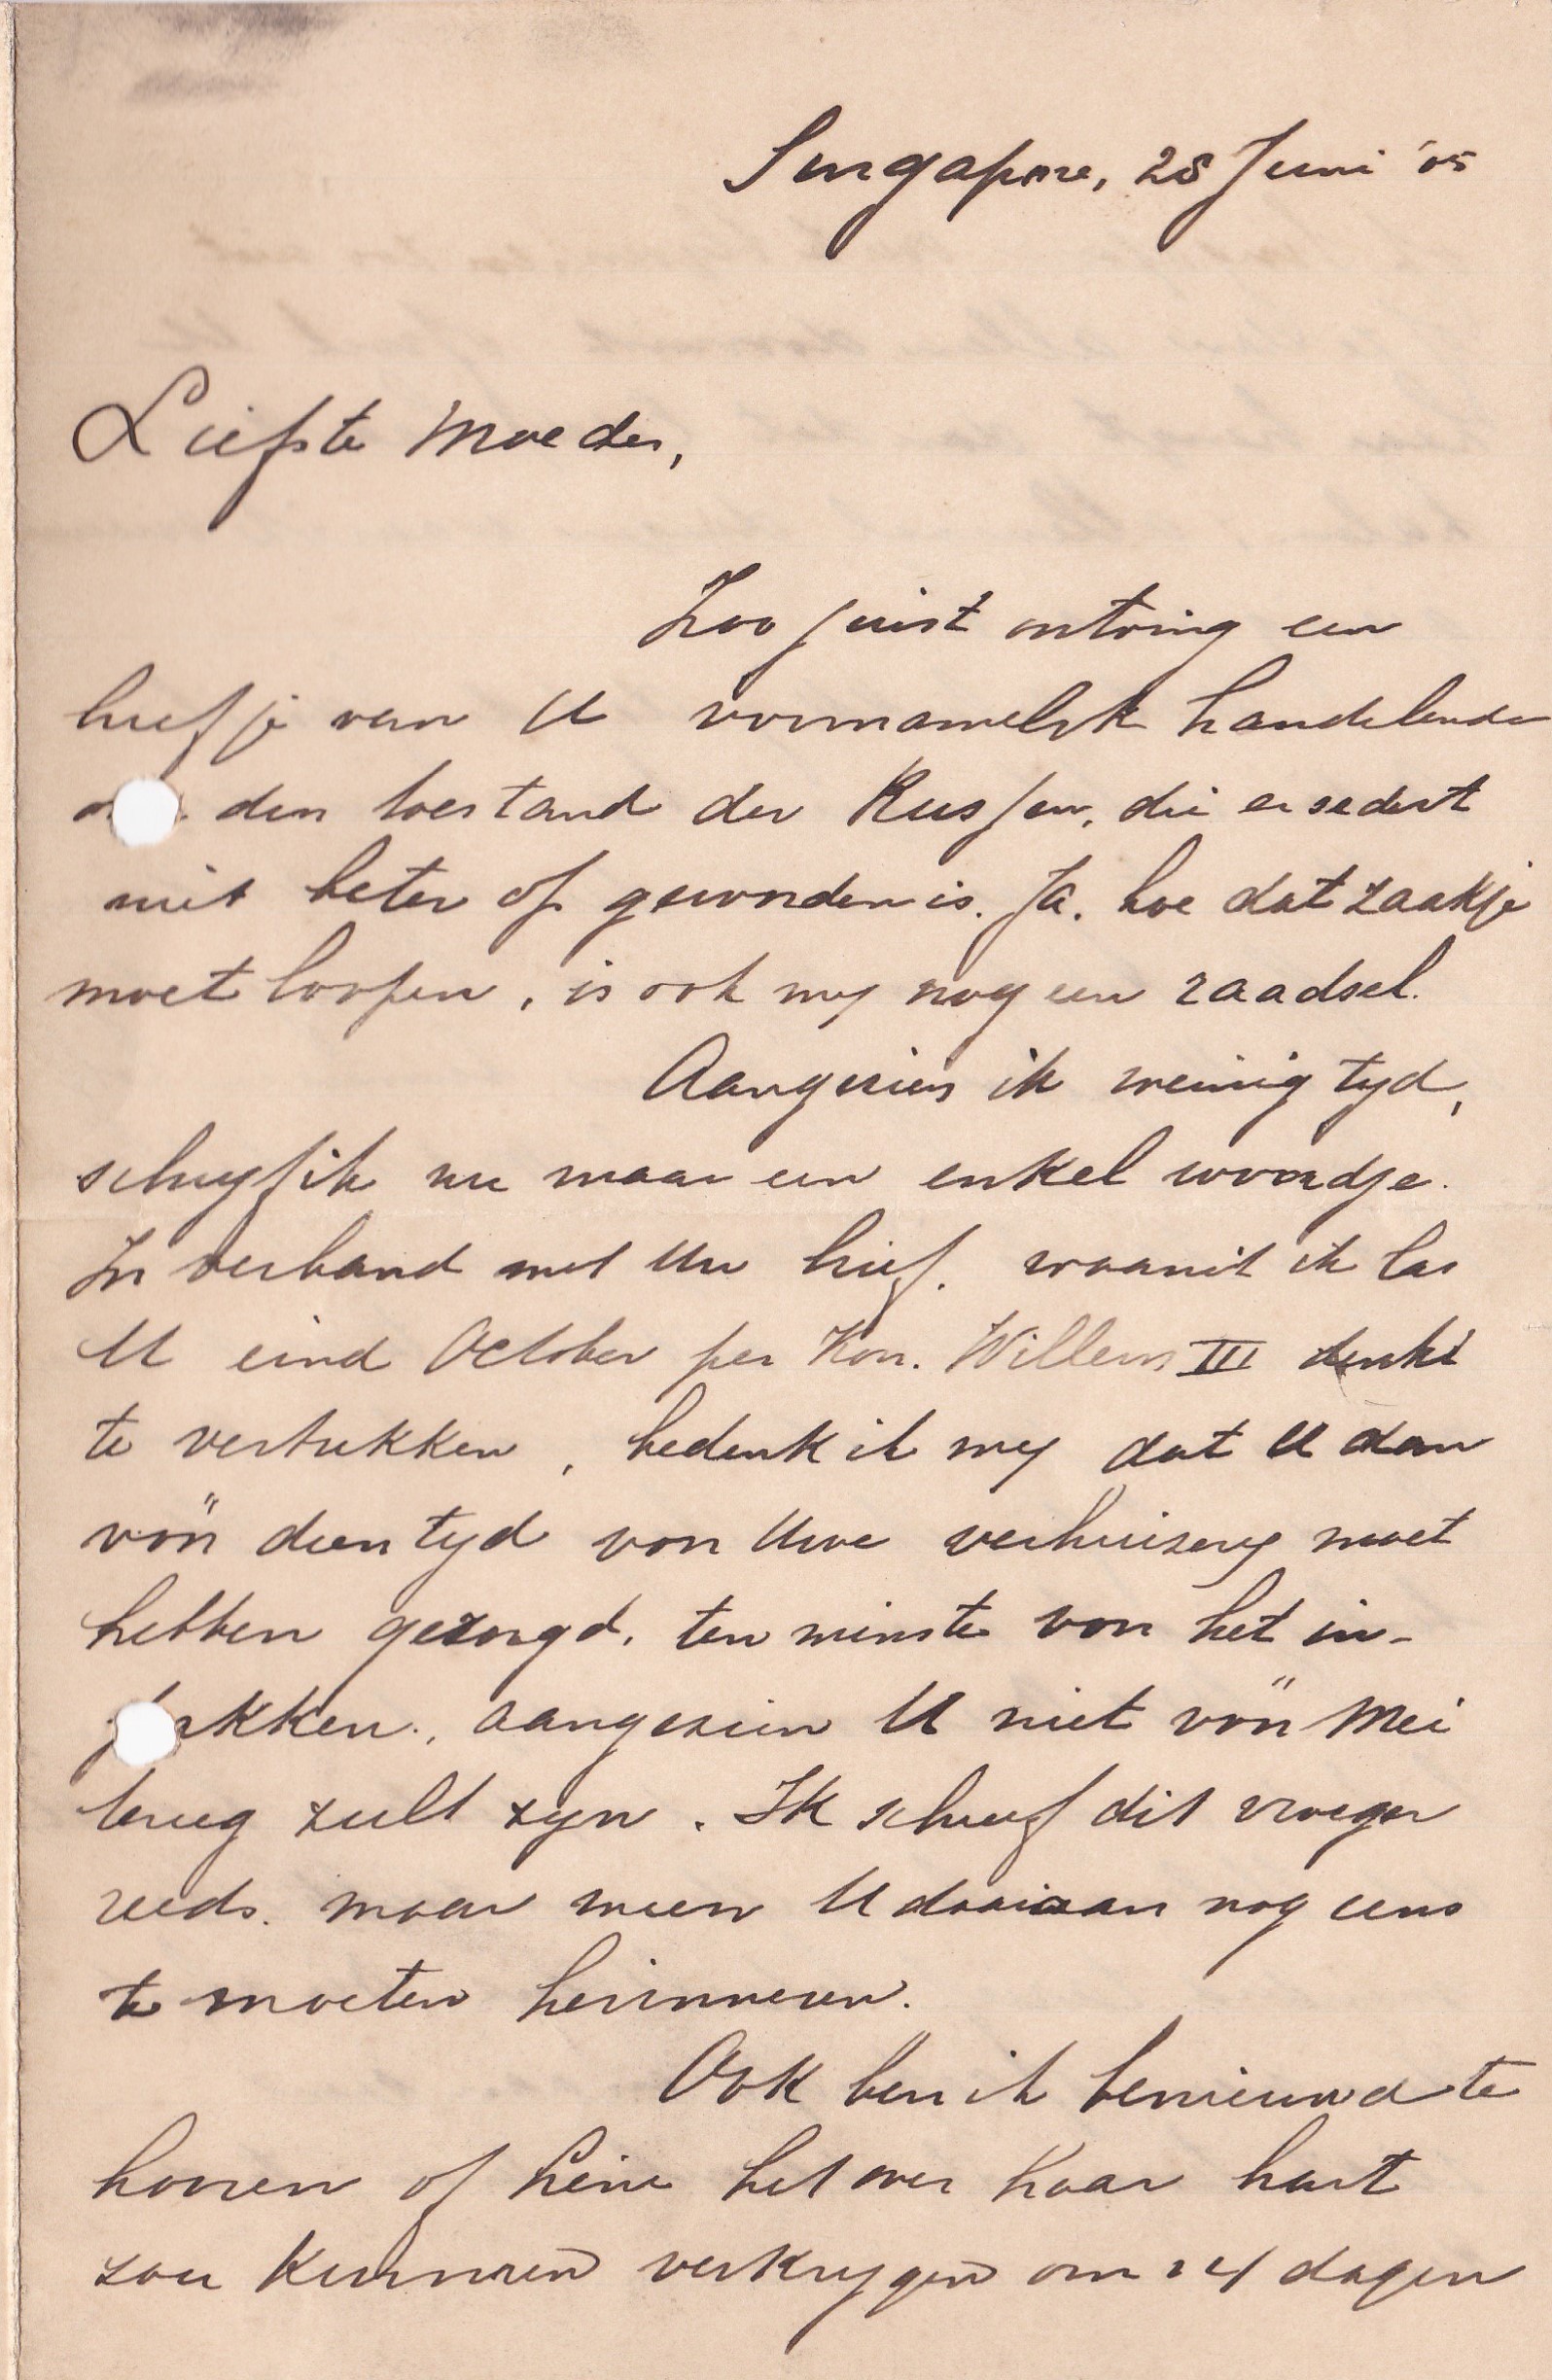 Singapore, 28 Juni '05
Liefste Moeder,
Zoo juist ontving een
briefje van U voornamelyk handelende
den toestand der Russen, die er sedert
niet beter op geworden is. Ja, hoe dat zaakje
moet loopen, is ook my nog een raadsel.
Aangezien ik weinig tyd,
schryf ik nu maar een enkel woordje.
In verband met Uw brief, waaruit ik las
U eind October per Kon. Willem III denkt
te vertrekken, bedenk ik my dat U dan
vöör dien tyd voor Uwe verhuizing moet
hebben gezorgd, ten minste voor het in-
pakken, aangezien U niet vöör Mei
terug zult zyn. Ik schreef dit vroeger
reeds, maar meen U daaraan nog eens
te moeten herinneren.
Ook ben ik benieuwd te
hooren of Leine het over haar hart
zou kunnen verkrygen om 14 dagen